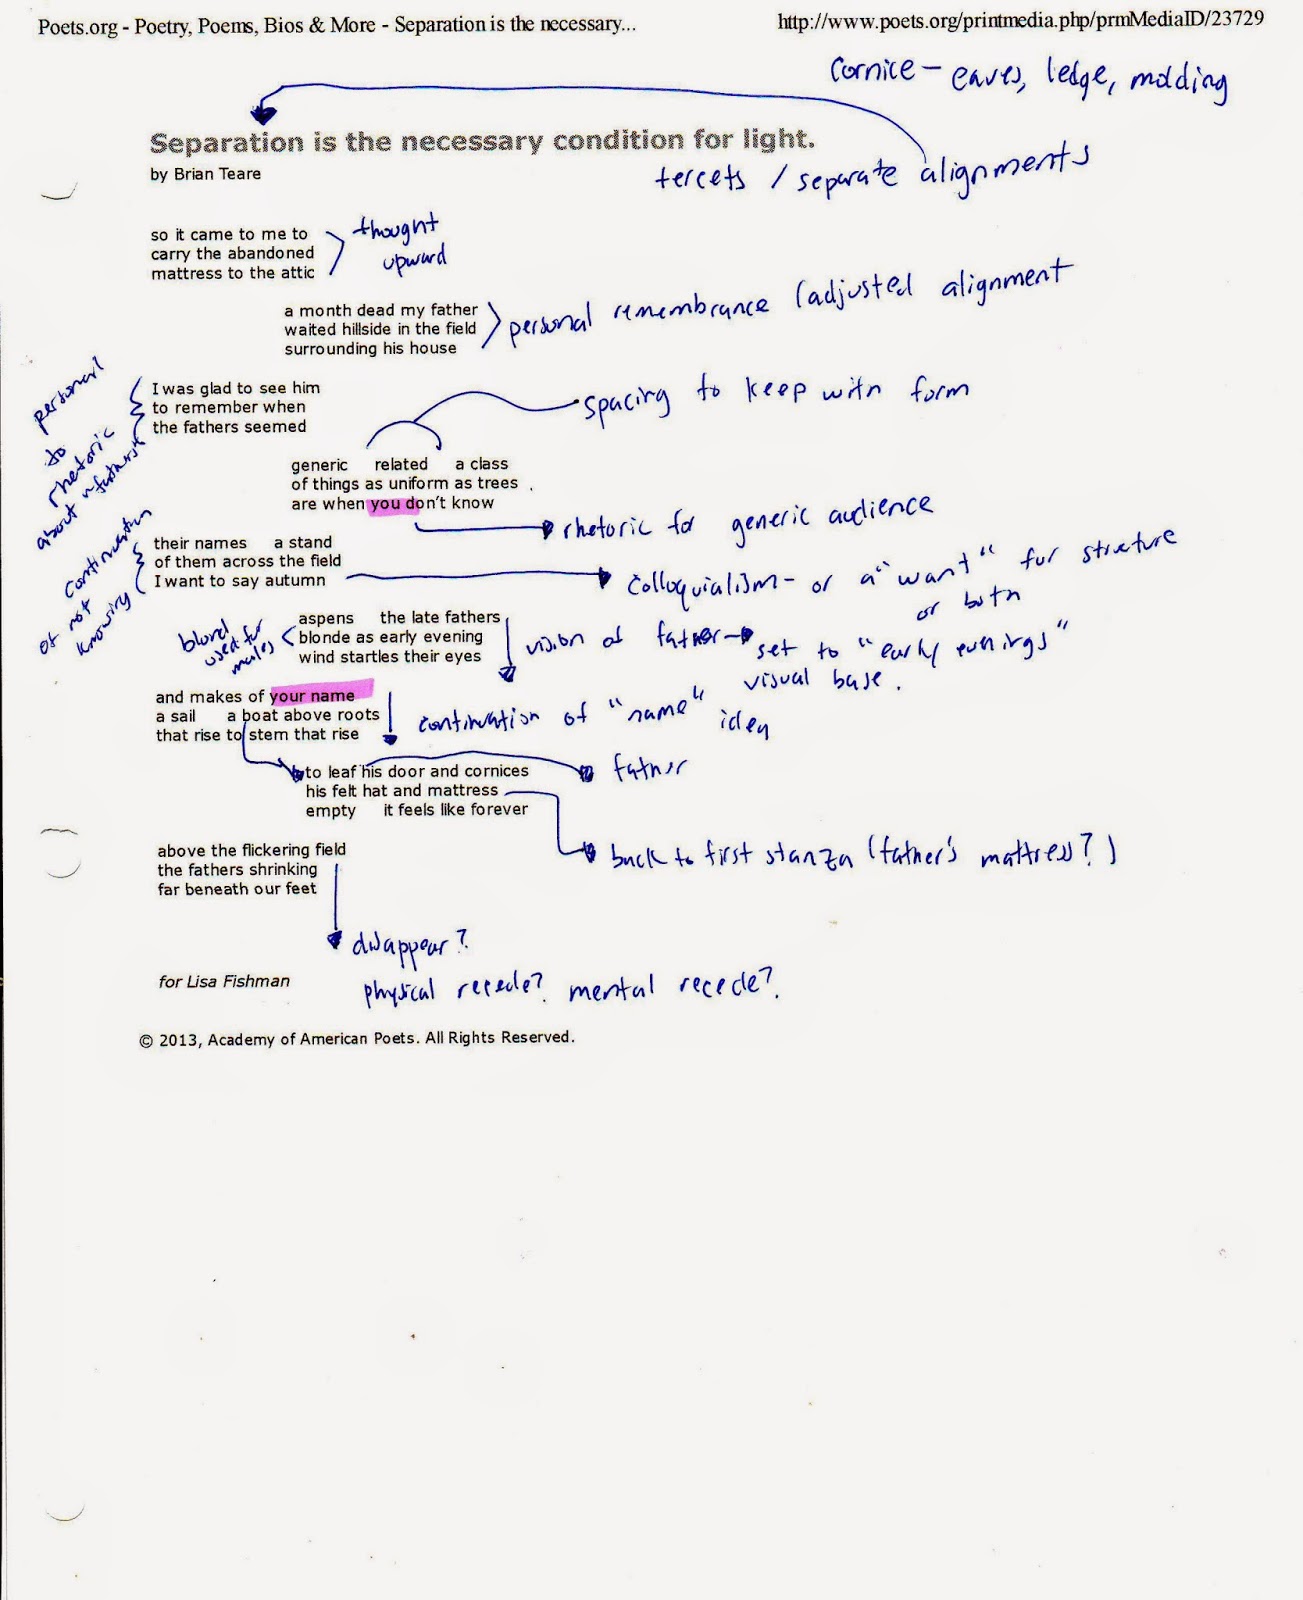 Poets.org - Poetry, Poems, Bios & More - Separation is the necessary...
http://www.poets.org/printmedia.php/prmMediaID/23729
Cornice - eaves, ledge, molding
Separation is the necessary condition for light.
by Brian Teare
tercets / separate alignments
so it came to me to
carry the abandoned
mattress to the attic
thought
upward
a month dead my father
waited hillside in the field
surrounding his house
personal remembrance (adjusted alignment
I was glad to see him
to remember when
the fathers seemed
personal
to
rhetoric
about "fathers"
spacing to keep with form
generic related a class
of things as uniform as trees
are when you don't know
rhetoric for generic audience
their names a stand
of them across the field
I want to say autumn
continuation
of not
knowing
colloquialism - or a "want" for structure
or both
aspens the late fathers
blonde as early evening
wind startles their eyes
blond
used for
males
vision of father
set to "early evenings"
visual base.
and makes of your name
a sail a boat above roots
that rise to stem that rise
continuation of "name" idea
to leaf his door and cornices
his felt hat and mattress
empty it feels like forever
father
back to first stanza (father's mattress?)
above the flickering field
the fathers shrinking
far beneath our feet
disappear?
physical recede? mental recede?
for Lisa Fishman
© 2013, Academy of American Poets. All Rights Reserved.